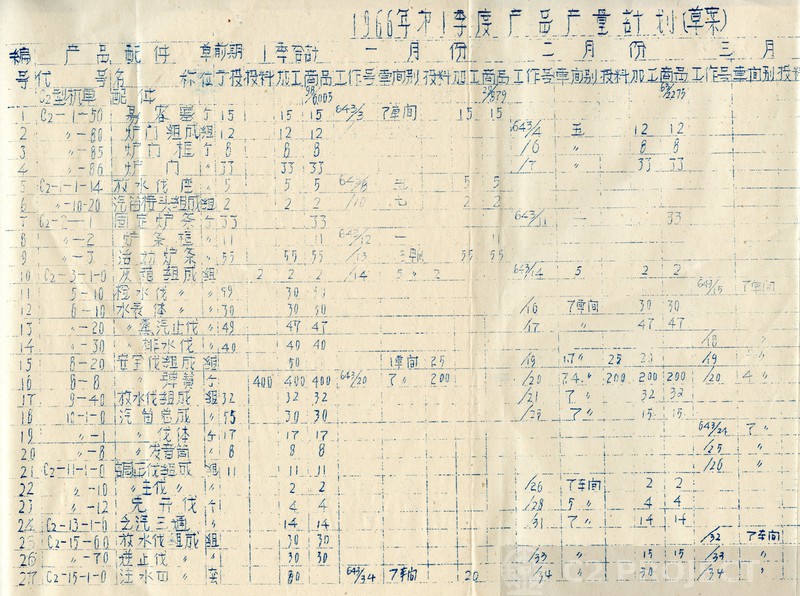 1966年才1季度产品产量計划(草案)
編 产品 配件 单 前期 1季合計 一月份 二月份 三月
号 代号 名称 位 于投 投料 加工 商品 工作号 車间别 投料 加工 商品 工作号 車间别 投料 加工 商品 工作号 車间别 投料
C2型机車配件
1 C2-1-50 易容塞 个 15 15 15 643/3 7車间 15 15
2 〃-80 炉门組成 組 12 12 12 643/4 五 12 12
3 〃-85 炉门框 个 8 8 8 /6 〃 8 8
4 〃-86 炉门 〃 33 33 33 /7 〃 33 33
5 C2-1-1-14 放水伐座 〃 5 5 5 5 5
6 〃-10-20 組 2 2 2 /10 七 2 2
7 C2-2-1 固定炉条 个 33 33 643/11 一 33
8 〃-2 炉条框 〃 11 11 643/12 一 11
9 〃-3 活动炉条 〃 55 55 55 /13 55 55
10 C2-3-1-0 灰箱組成 組 2 2 2 /14 5 〃 2 643/14 5 2 2
11 5-10 水伐 〃 〃 30 30 643/15 7車间
12 6-10 水表体 〃 〃 30 30 30 /16 7車间 30 30
13 〃-20 〃蒸汽止伐 〃 49 47 47 /17 〃 47 47
14 〃-30 〃排水伐 〃 40 40 40 /18 〃
15 8-20 安全伐組成 組 50 1車间 25 /19 1.7〃 25 /19 5 〃
16 8-8 〃弹簧 个 400 400 400 643/20 7 〃 200 /20 7.4.〃 200 200 200 /20 4 〃
17 9-40 放水伐組成 組 32 32 32 /21 7 〃 32 32
18 10-1-0 汽笛总成 〃 55 30 30 7 〃 15 15
19 〃-1 〃伐体 个 17 17 17 643/24 7 〃
20 〃-8 〃发音筒 〃 8 8 8 /25 〃
21 C2-11-1-0 止伐組成 組 11 11 11 /26 〃
22 〃-10 〃主伐 〃 2 2 /26 7車间 2 2
23 〃-12 〃 伐 个 4 4 /28 5 〃 4 4
24 C2-13-1-0 汽三通 〃 14 14 /31 7 〃 14 14
25 C2-15-60 放水伐組成 組 30 30 /32 7車间
26 〃-70 逆止伐 〃 〃 30 30 /33 〃 15 15 /33 〃
27 C2-15-1-0 注水 〃 套 80 643/34 7車间 20 /34 〃 30 /34 〃
C2 PROJECT